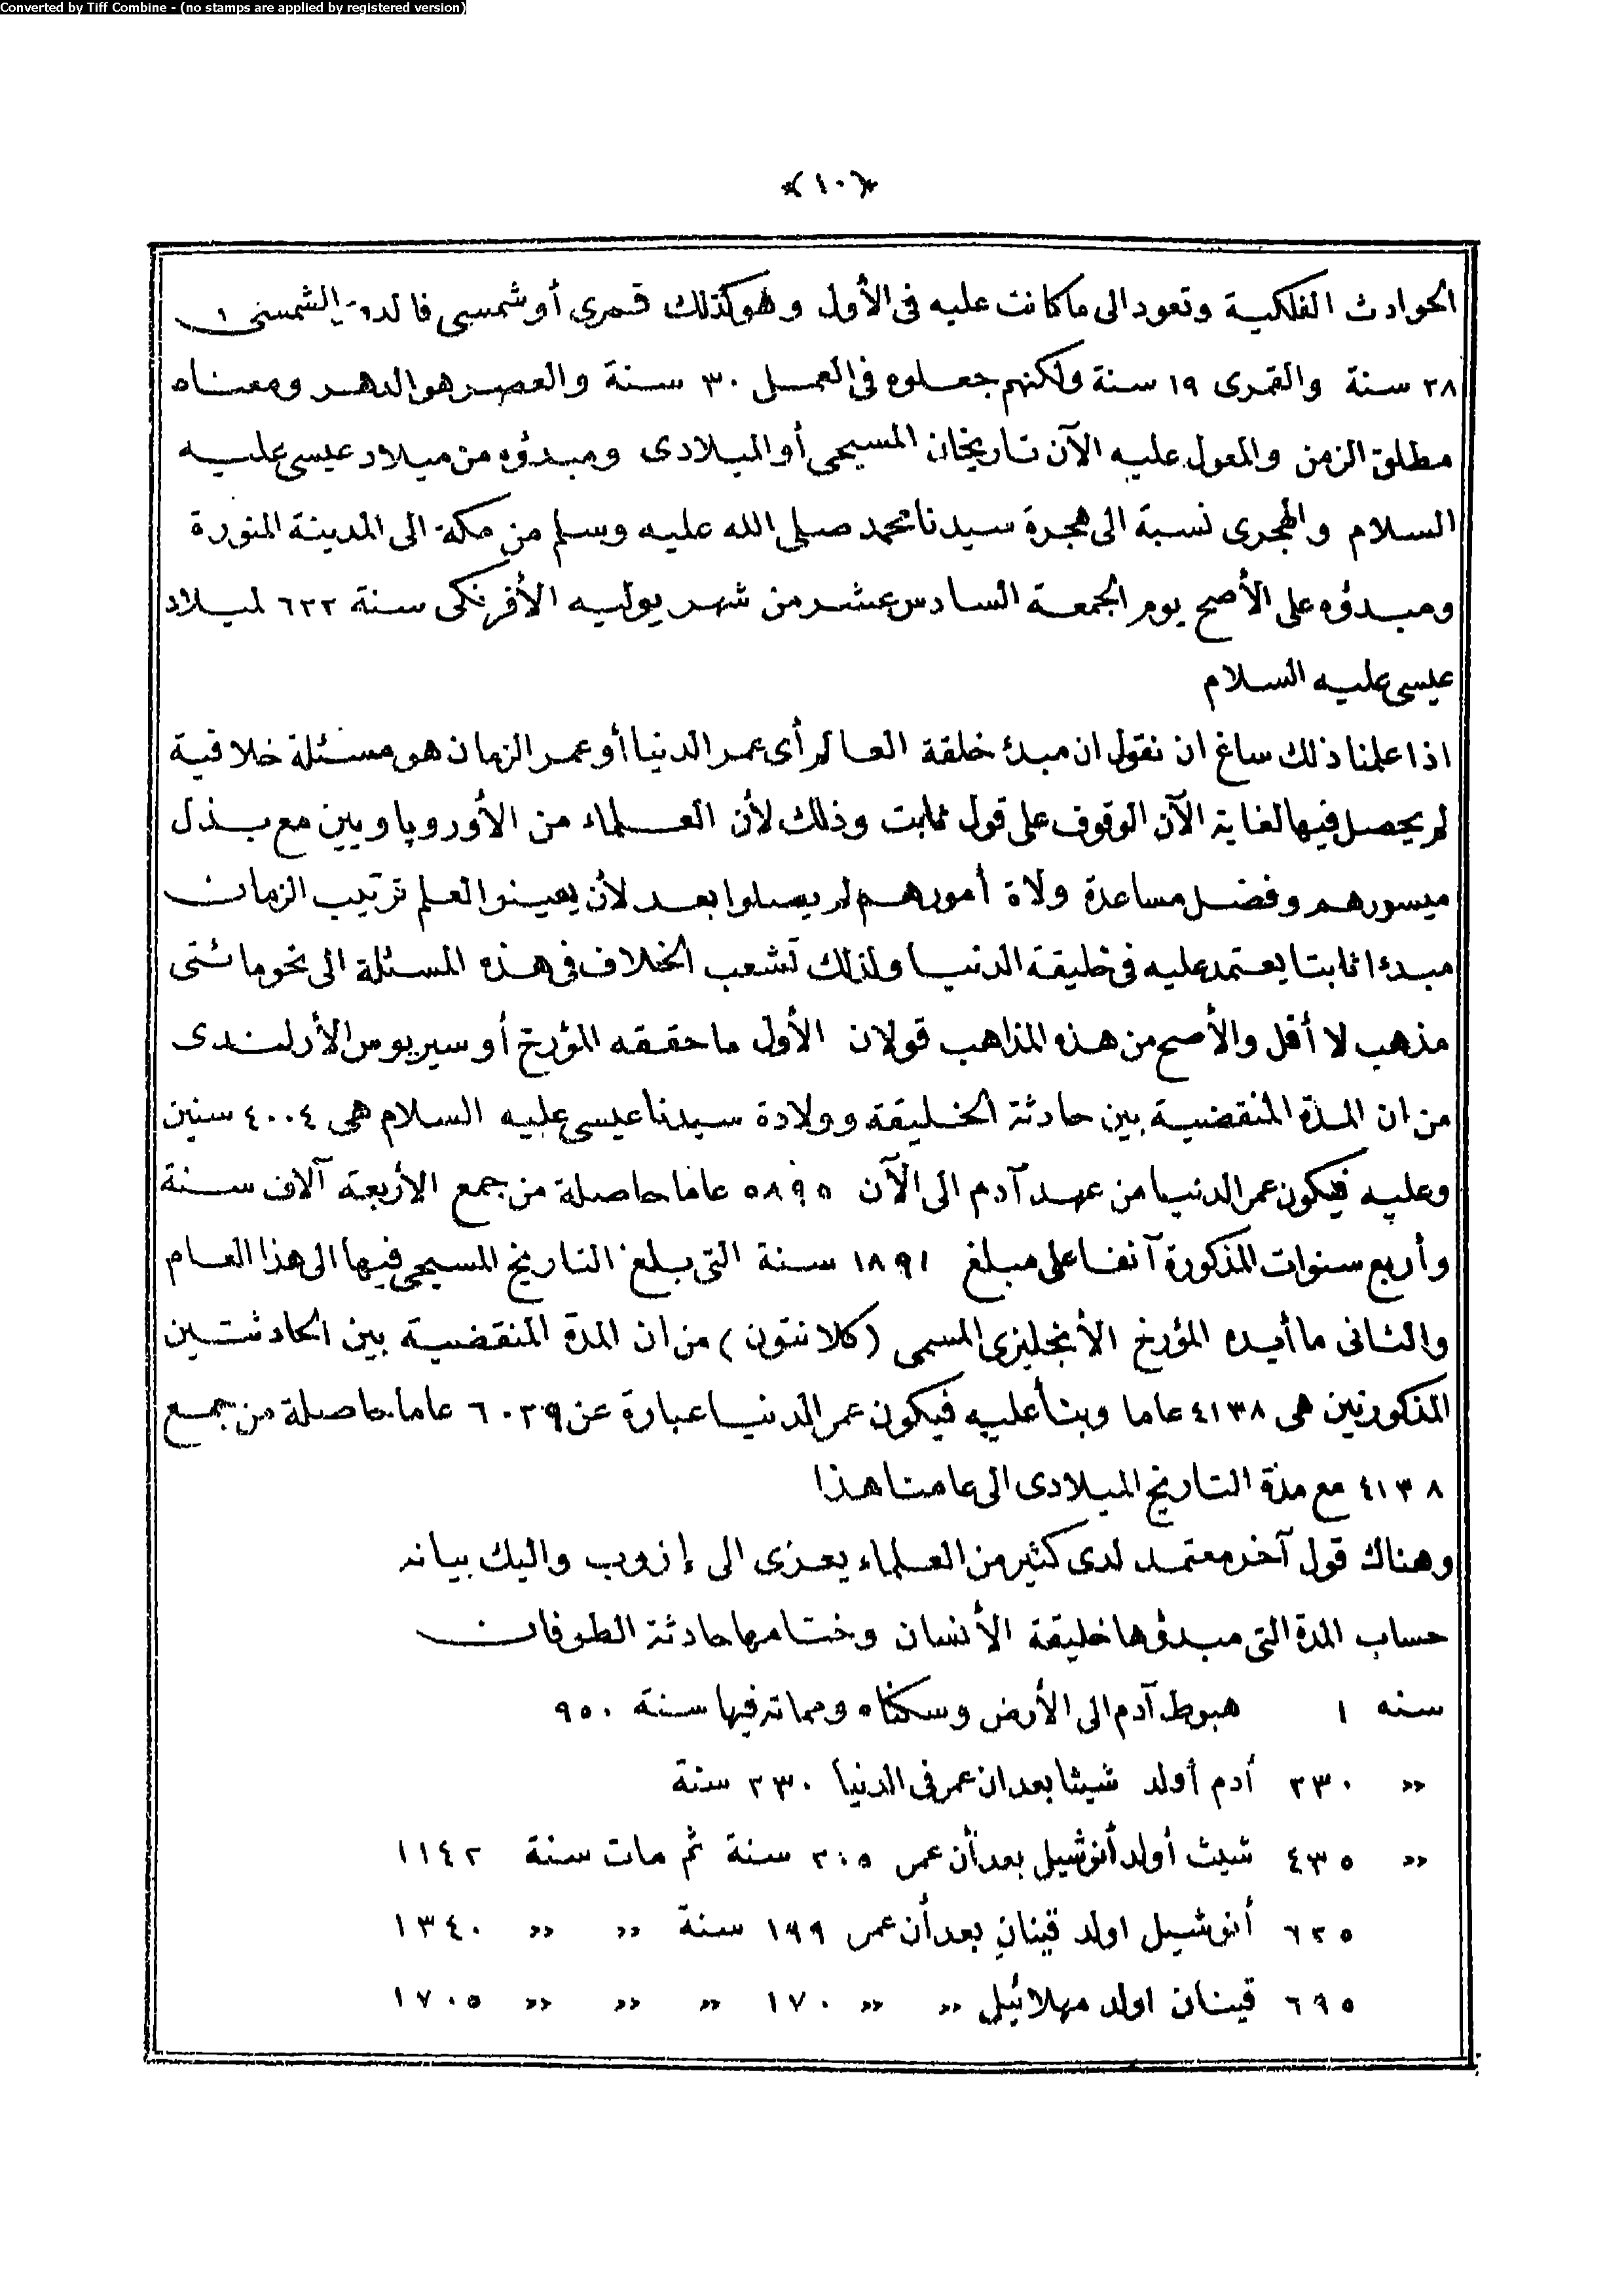 Converted by Tiff Combine - (no stamps are applied by registered version)
﴿١٠﴾
الحوادث الفلكية وتعود الى ما كانت عليه فى الأول وهو كذلك قمرى أو شمسى فالدور الشمسى
٢٨ سنة والقمرى ١٩ سنة ولكنهم جعلوه فى العمل ٣٠ سنة والعصر هو الدهر ومعناه
مطلق الزمن والمعول عليه الآن تاريخان المسيحى أو الميلادى ومبدؤه من ميلاد عيسى عليه
السلام والهجرى نسبة الى هجرة سيدنا محمد صلى الله عليه وسلم من مكة الى المدينة المنورة
ومبدؤه على الأصح يوم الجمعة السادس عشر من شهر يوليه الأفرنكى سنة ٦٢٢ لميلاد
عيسى عليه السلام
اذا علمنا ذلك ساغ ان نقول ان مبدئ خلقة العالم أى عمر الدنيا أو عمر الزمان هو مسئلة خلافية
لم يحصل فيها لغاية الآن الوقوف على قول ثابت وذلك لأن العلماء من الأوروپاويين مع بذل
ميسورهم وفضل مساعدة ولاة أمورهم لم يصلوا بعد لأن يعينوا لعلم ترتيب الزمان
مبدءا ثابتا يعتمد عليه فى خليقة الدنيا ولذلك تشعب الخلاف فى هذه المسئلة الى نحو مائتى
مذهب لا أقل والأصح من هذه المذاهب قولان الأول ما حققه المؤرخ أوسيريوس الأرلندى
من ان المدة المنقضية بين حادثة الخليقة وولادة سيدنا عيسى عليه السلام هى ٤٠٠٤ سنين
وعليه فيكون عمر الدنيا من عهد آدم الى الآن ٥٨٩٥ عاما حاصلة من جمع الأربعة آلاف سنة
وأربع سنوات المذكورة آنفا على مبلغ ١٨٩١ سنة التى بلغ التاريخ المسيحى فيها الى هذا العام
والثانى ما أيده المؤرخ الأنجليزى المسمى (كلانتون) من ان المدة المنقضية بين الحادثتين
المذكورتين هى ٤١٣٨ عاما وبنأ عليه فيكون عمر الدنيا عبارة عن ٦٠٢٩ عاما حاصلة من جمع
٤١٣٨ مع مدة التاريخ الميلادى الى عامنا هذا
وهناك قول آخر معتمد لدى كثير من العلماء يعزى الى إزوب واليك بيانه
حساب المدة التى مبدؤها خليقة الأنسان وختامها حادثة الطوفان
سنه ١ هبوط آدم الى الأرض وسكناه ومماته فيها سنة ٩٥٠
» ٢٣٠ أدم أولد شيثا بعد ان عمر فى الدنيا ٢٣٠ سنة
» ٤٣٥ شيث أولد أنوشيل بعد أن عمر ٢٠٥ سنة ثم مات سنة ١١٤٢
٦٢٥ أنوشيل اولد قينان بعد أن عمر ١٩٩ سنة » » ١٣٤٠
٦٩٥ قينان اولد مهلائيل » » ١٧٠ » » » ١٧٠٥